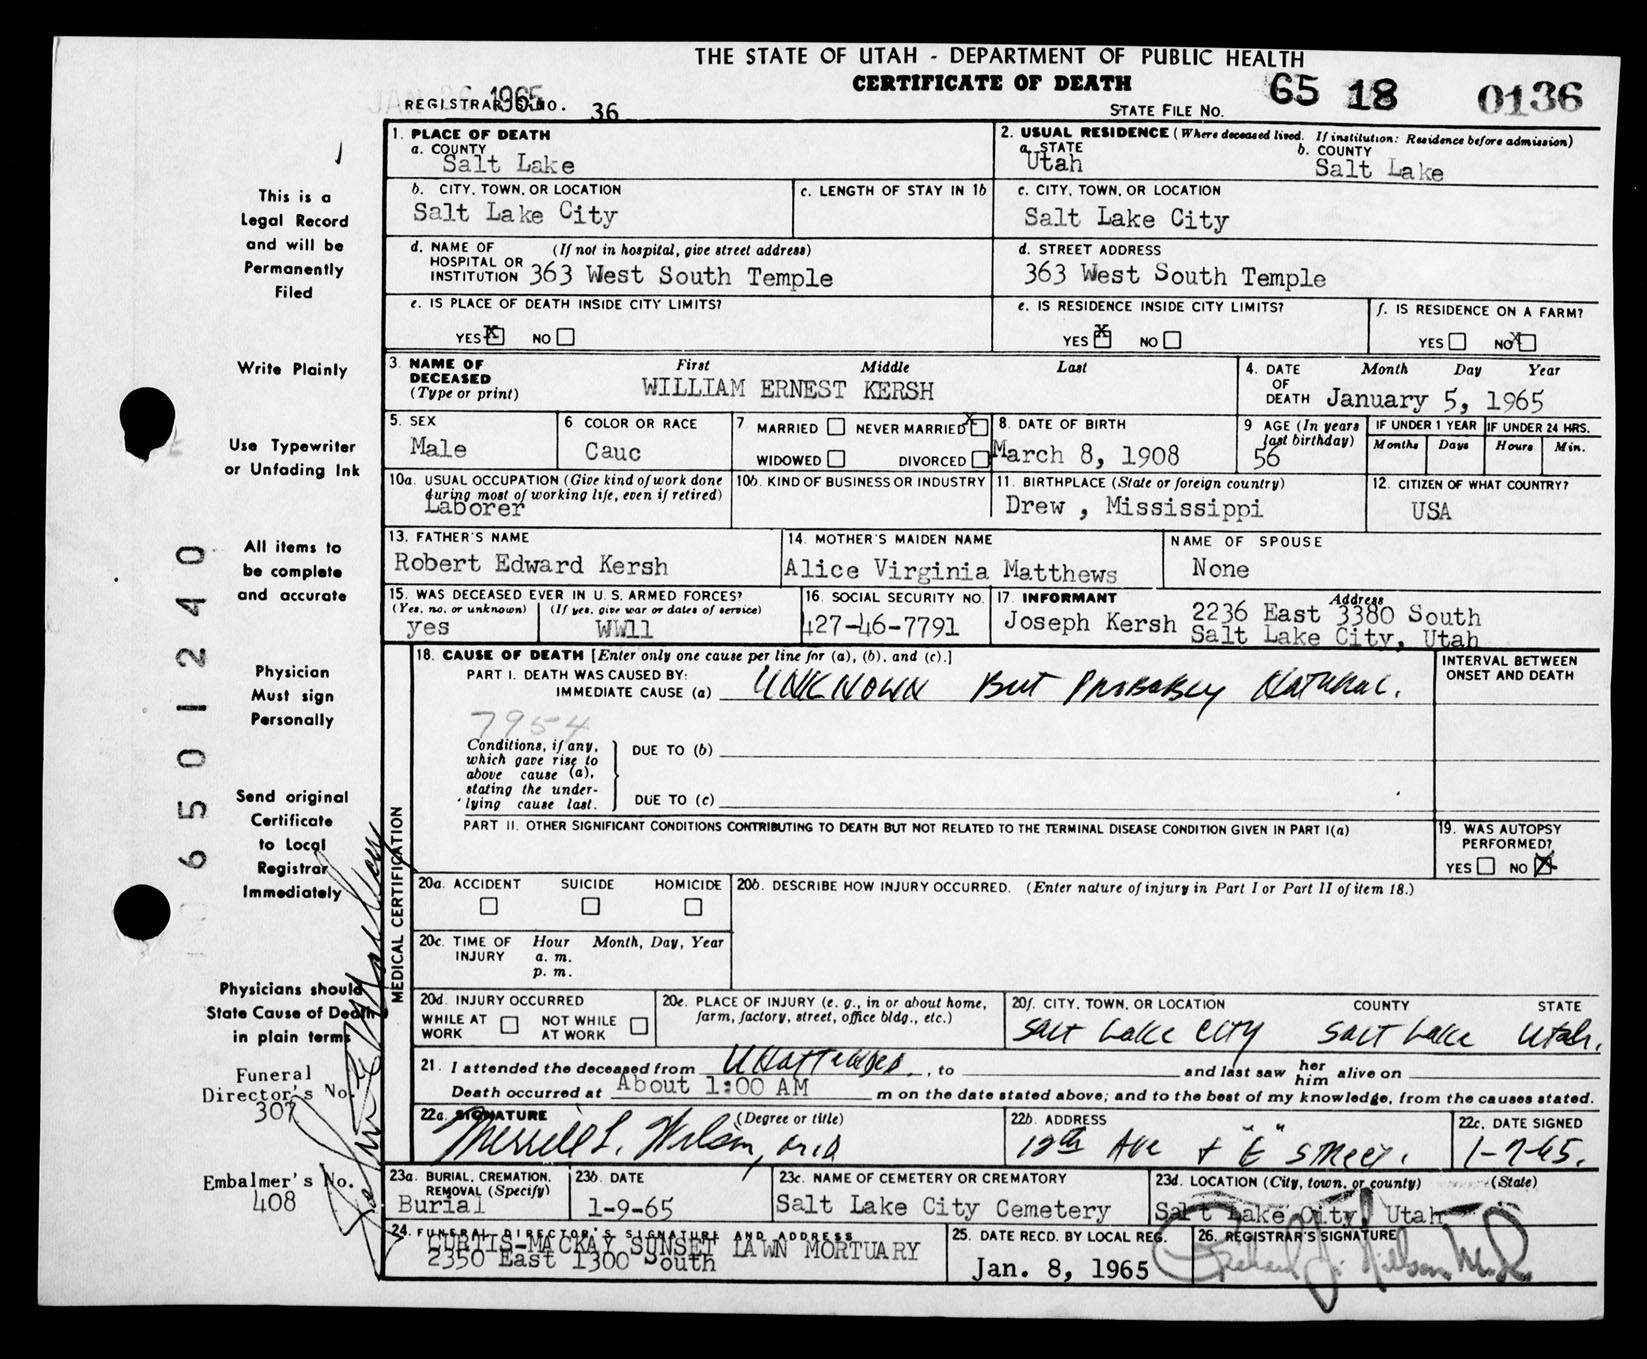 THE STATE OF UTAH - DEPARTMENT OF PUBLIC HEALTH
CERTIFICATE OF DEATH
REGISTRAR'S NO. 36
1965
STATE FILE NO. 65 18 0136
1. PLACE OF DEATH
a. COUNTY
Salt Lake
2. USUAL RESIDENCE (Where deceased lived. If institution: Residence before admission)
a. STATE
Utah
b. COUNTY
Salt Lake
b. CITY, TOWN, OR LOCATION
Salt Lake City
c. LENGTH OF STAY IN 1b
c. CITY, TOWN, OR LOCATION
Salt Lake City
d. NAME OF HOSPITAL OR INSTITUTION (If not in hospital, give street address)
363 West South Temple
d. STREET ADDRESS
363 West South Temple
e. IS PLACE OF DEATH INSIDE CITY LIMITS?
YES X NO
e. IS RESIDENCE INSIDE CITY LIMITS?
YES X NO
f. IS RESIDENCE ON A FARM?
YES NO X
3. NAME OF DECEASED (Type or print)
First Middle Last
WILLIAM ERNEST KERSH
4. DATE OF DEATH
Month Day Year
January 5, 1965
5. SEX
Male
6 COLOR OR RACE
Cauc
7 MARRIED NEVER MARRIED X
WIDOWED DIVORCED
8. DATE OF BIRTH
March 8, 1908
9 AGE (In years last birthday)
56
IF UNDER 1 YEAR
Months Days
IF UNDER 24 HRS.
Hours Min.
10a. USUAL OCCUPATION (Give kind of work done during most of working life, even if retired)
Laborer
10b. KIND OF BUSINESS OR INDUSTRY
11. BIRTHPLACE (State or foreign country)
Drew , Mississippi
12. CITIZEN OF WHAT COUNTRY?
USA
13. FATHER'S NAME
Robert Edward Kersh
14. MOTHER'S MAIDEN NAME
Alice Virginia Matthews
NAME OF SPOUSE
None
15. WAS DECEASED EVER IN U.S. ARMED FORCES?
(Yes, no, or unknown) (If yes, give war or dates of service)
yes WW11
16. SOCIAL SECURITY NO.
427-46-7791
17. INFORMANT Address
Joseph Kersh 2236 East 3380 South
Salt Lake City, Utah
MEDICAL CERTIFICATION
18. CAUSE OF DEATH [Enter only one cause per line for (a), (b), and (c).]
PART I. DEATH WAS CAUSED BY:
IMMEDIATE CAUSE (a) UNKNOWN But Probably Natural.
INTERVAL BETWEEN ONSET AND DEATH
7954
Conditions, if any, which gave rise to above cause (a), stating the underlying cause last.
DUE TO (b)
DUE TO (c)
PART II. OTHER SIGNIFICANT CONDITIONS CONTRIBUTING TO DEATH BUT NOT RELATED TO THE TERMINAL DISEASE CONDITION GIVEN IN PART I(a)
19. WAS AUTOPSY PERFORMED?
YES NO X
20a. ACCIDENT SUICIDE HOMICIDE
20b. DESCRIBE HOW INJURY OCCURRED. (Enter nature of injury in Part I or Part II of item 18.)
20c. TIME OF INJURY Hour Month, Day, Year
a. m.
p. m.
20d. INJURY OCCURRED
WHILE AT WORK NOT WHILE AT WORK
20e. PLACE OF INJURY (e. g., in or about home, farm, factory, street, office bldg., etc.)
20f. CITY, TOWN, OR LOCATION COUNTY STATE
Salt Lake City Salt Lake Utah.
21. I attended the deceased from Unattended, to and last saw her him alive on
Death occurred at About 1:00 AM m on the date stated above; and to the best of my knowledge, from the causes stated.
22a. SIGNATURE (Degree or title)
Merrill L. Wilson, M.D
22b. ADDRESS
12th Ave + "E" Street.
22c. DATE SIGNED
1-7-65.
23a. BURIAL, CREMATION, REMOVAL (Specify)
Burial
23b. DATE
1-9-65
23c. NAME OF CEMETERY OR CREMATORY
Salt Lake City Cemetery
23d. LOCATION (City, town, or county) (State)
Salt Lake City, Utah
24. FUNERAL DIRECTOR'S SIGNATURE AND ADDRESS
CURTIS-MACKAY SUNSET LAWN MORTUARY
2350 East 1300 South
25. DATE RECD. BY LOCAL REG.
Jan. 8, 1965
26. REGISTRAR'S SIGNATURE
This is a
Legal Record
and will be
Permanently
Filed
Write Plainly
Use Typewriter
or Unfading Ink
All items to
be complete
and accurate
Physician
Must sign
Personally
Send original
Certificate
to Local
Registrar
Immediately
Physicians should
State Cause of Death
in plain terms
Funeral
Director's No.
307
Embalmer's No.
408
6501240